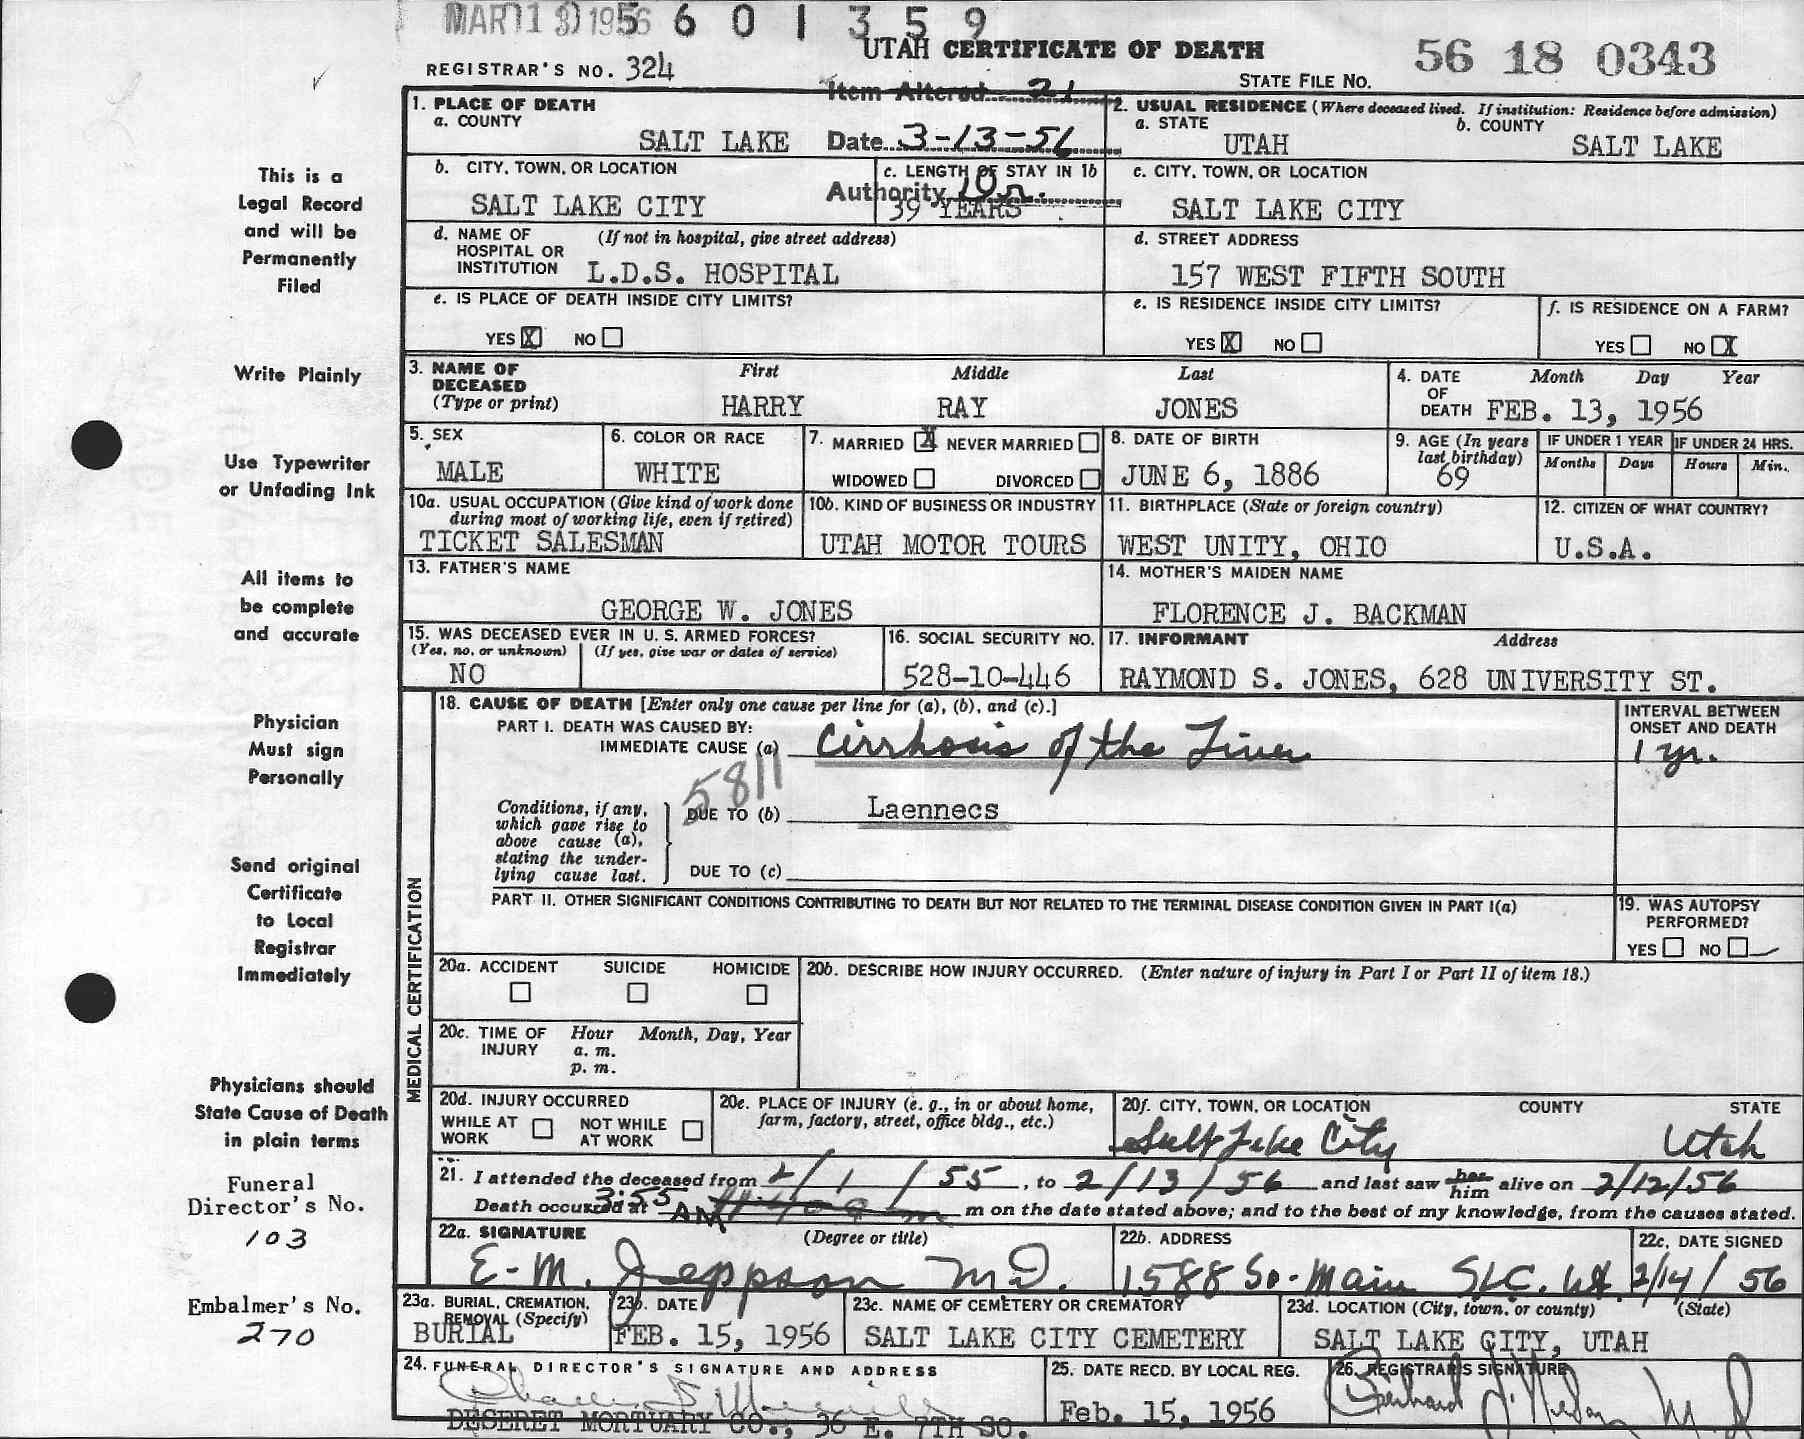 MAR 13 1956 6 0 1 3 5 9
UTAH CERTIFICATE OF DEATH
56 18 0343
REGISTRAR'S NO. 324
STATE FILE NO.
Item Altered 21
Date 3-13-56
Authority
1. PLACE OF DEATH
a. COUNTY
SALT LAKE
2. USUAL RESIDENCE (Where deceased lived. If institution: Residence before admission)
a. STATE
UTAH
b. COUNTY
SALT LAKE
b. CITY, TOWN, OR LOCATION
SALT LAKE CITY
c. LENGTH OF STAY IN 1b
39 YEARS
c. CITY, TOWN, OR LOCATION
SALT LAKE CITY
d. NAME OF HOSPITAL OR INSTITUTION
(If not in hospital, give street address)
L.D.S. HOSPITAL
d. STREET ADDRESS
157 WEST FIFTH SOUTH
e. IS PLACE OF DEATH INSIDE CITY LIMITS?
YES X NO
e. IS RESIDENCE INSIDE CITY LIMITS?
YES X NO
f. IS RESIDENCE ON A FARM?
YES NO X
3. NAME OF DECEASED
(Type or print)
First Middle Last
HARRY RAY JONES
4. DATE OF DEATH
Month Day Year
FEB. 13, 1956
5. SEX
MALE
6. COLOR OR RACE
WHITE
7. MARRIED X NEVER MARRIED
WIDOWED DIVORCED
8. DATE OF BIRTH
JUNE 6, 1886
9. AGE (In years last birthday)
69
IF UNDER 1 YEAR
Months Days
IF UNDER 24 HRS.
Hours Min.
10a. USUAL OCCUPATION (Give kind of work done during most of working life, even if retired)
TICKET SALESMAN
10b. KIND OF BUSINESS OR INDUSTRY
UTAH MOTOR TOURS
11. BIRTHPLACE (State or foreign country)
WEST UNITY, OHIO
12. CITIZEN OF WHAT COUNTRY?
U.S.A.
13. FATHER'S NAME
GEORGE W. JONES
14. MOTHER'S MAIDEN NAME
FLORENCE J. BACKMAN
15. WAS DECEASED EVER IN U. S. ARMED FORCES?
(Yes, no, or unknown) (If yes, give war or dates of service)
NO
16. SOCIAL SECURITY NO.
528-10-446
17. INFORMANT Address
RAYMOND S. JONES, 628 UNIVERSITY ST.
MEDICAL CERTIFICATION
18. CAUSE OF DEATH [Enter only one cause per line for (a), (b), and (c).]
PART I. DEATH WAS CAUSED BY:
IMMEDIATE CAUSE (a) Cirrhosis of the Liver
INTERVAL BETWEEN ONSET AND DEATH
1 yr.
5811
Conditions, if any, which gave rise to above cause (a), stating the underlying cause last.
DUE TO (b) Laennecs
DUE TO (c)
PART II. OTHER SIGNIFICANT CONDITIONS CONTRIBUTING TO DEATH BUT NOT RELATED TO THE TERMINAL DISEASE CONDITION GIVEN IN PART I(a)
19. WAS AUTOPSY PERFORMED?
YES NO
20a. ACCIDENT SUICIDE HOMICIDE
20b. DESCRIBE HOW INJURY OCCURRED. (Enter nature of injury in Part I or Part II of item 18.)
20c. TIME OF INJURY
Hour Month, Day, Year
a. m.
p. m.
20d. INJURY OCCURRED
WHILE AT WORK NOT WHILE AT WORK
20e. PLACE OF INJURY (e. g., in or about home, farm, factory, street, office bldg., etc.)
20f. CITY, TOWN, OR LOCATION COUNTY STATE
Salt Lake City Utah
21. I attended the deceased from 2/1/55, to 2/13/56 and last saw her him alive on 2/12/56
Death occurred at 3:55 AM m on the date stated above; and to the best of my knowledge, from the causes stated.
22a. SIGNATURE (Degree or title)
E. M. Jeppson M.D.
22b. ADDRESS
1588 So. Main SLC. Ut
22c. DATE SIGNED
2/14/56
23a. BURIAL, CREMATION, REMOVAL (Specify)
BURIAL
23b. DATE
FEB. 15, 1956
23c. NAME OF CEMETERY OR CREMATORY
SALT LAKE CITY CEMETERY
23d. LOCATION (City, town, or county) (State)
SALT LAKE CITY, UTAH
24. FUNERAL DIRECTOR'S SIGNATURE AND ADDRESS
DESERET MORTUARY CO., 36 E. 7TH SO.
25. DATE RECD. BY LOCAL REG.
Feb. 15, 1956
26. REGISTRAR'S SIGNATURE
This is a
Legal Record
and will be
Permanently
Filed
Write Plainly
Use Typewriter
or Unfading Ink
All items to
be complete
and accurate
Physician
Must sign
Personally
Send original
Certificate
to Local
Registrar
Immediately
Physicians should
State Cause of Death
in plain terms
Funeral
Director's No.
103
Embalmer's No.
270